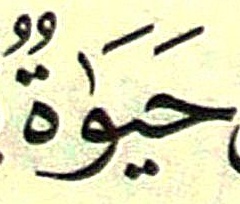 حَيَوٰةٌ